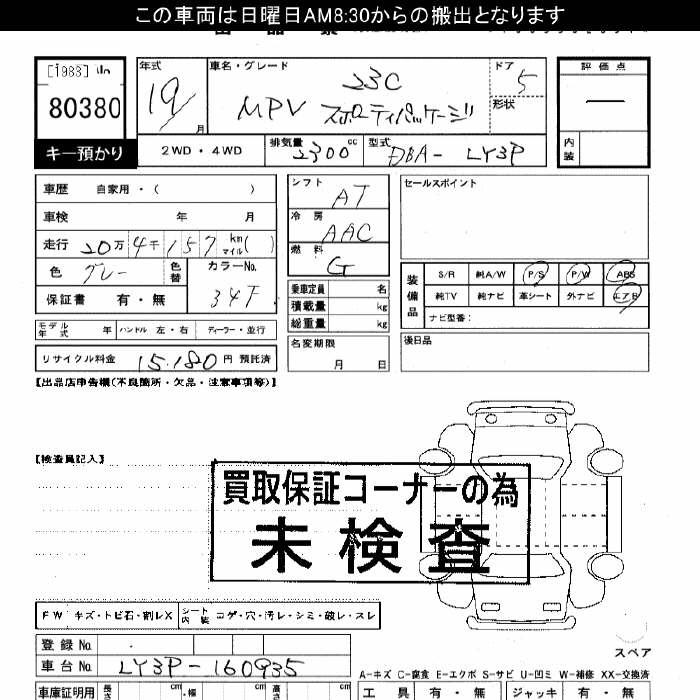 この車両は日曜日AM8:30からの搬出となります
[1983]
80380
キー預かり
年式
19
月
車名・グレード
23C
MPV スポーティパッケージ
ドア
5
形状
評価点
―
内装
2WD・4WD
排気量
2300 cc
型式
DBA- LY3P
車歴 自家用・( )
車検 年 月
走行 20万4千157 km マイル( )
色 グレー
色替
カラーNo.
34F
保証書 有・無
シフト
AT
冷房
AAC
燃料
G
セールスポイント
装備品
S/R 純A/W P/S P/W ABS
純TV 純ナビ 革シート 外ナビ エアB
ナビ型番:
乗車定員 名
積載量 kg
総重量 kg
モデル年式 年 ハンドル 左・右 ディーラー・並行
名変期限
月 日
後日品
リサイクル料金 15,180 円 預託済
【出品店申告欄(不良箇所・欠品・注意事項等)】
【検査員記入】
買取保証コーナーの為
未検査
FW キズ・トビ石・割レX シート内装 コゲ・穴・汚レ・シミ・破レ・スレ
登録No.
車台No. LY3P-160935
スペア
A-キズ C-腐食 E-エクボ S-サビ U-凹ミ W-補修 XX-交換済
車庫証明用 長さ cm 幅 cm 高さ cm
工具 有・無 ジャッキ 有・無